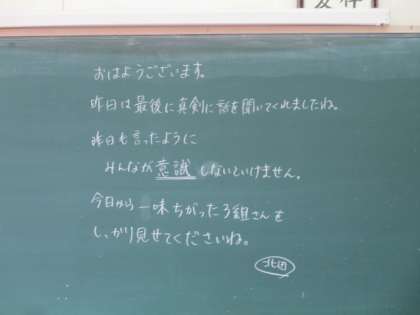 おはようございます。
昨日は最後に真剣に話を聞いてくれましたね。
昨日も言ったように
みんなが意識しないといけません。
今日から一味ちがった3組さんを
しっかり見せてくださいね。
北田